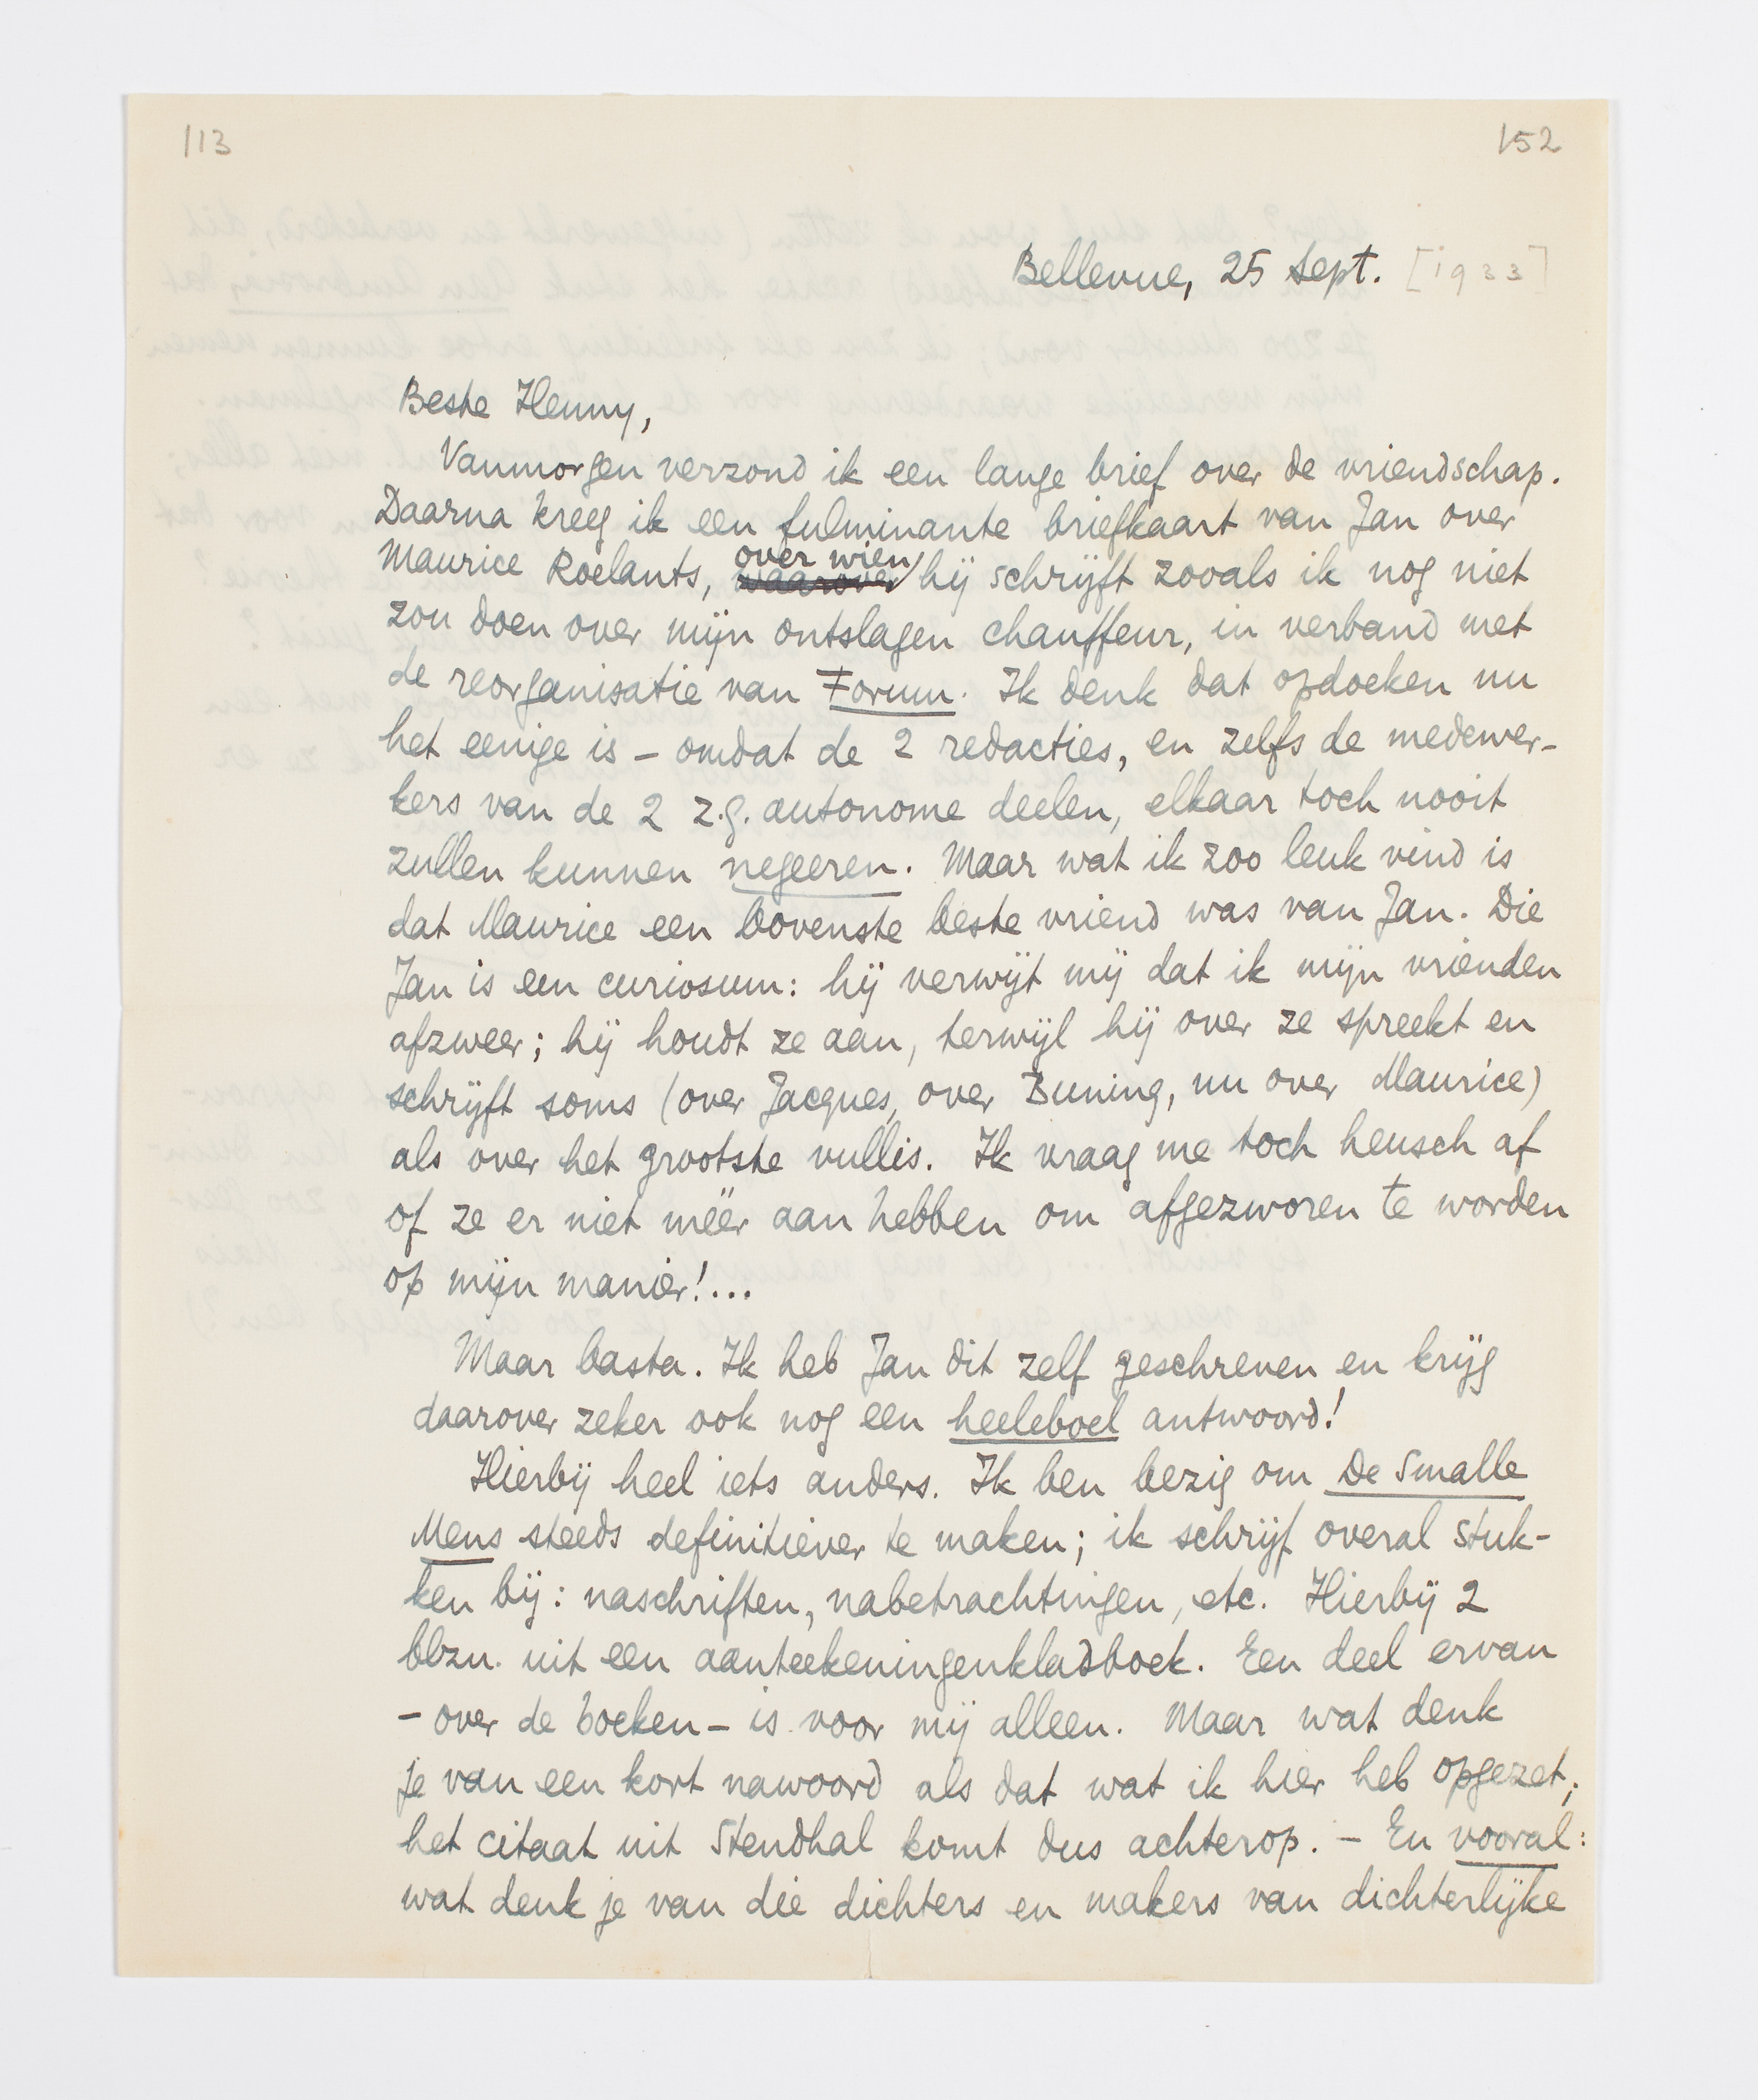 113
152
Bellevue, 25 Sept. [1933]
Beste Henny,
Vanmorgen verzond ik een lange brief over de vriendschap.
Daarna kreeg ik een fulminante briefkaart van Jan over
Maurice Roelants, waarover over wien hij schrijft zooals ik nog niet
zou doen over mijn ontslagen chauffeur, in verband met
de reorganisatie van Forum. Ik denk dat opdoeken nu
het eenige is – omdat de 2 redacties, en zelfs de medewer-
kers van de 2 z.g. autonome deelen, elkaar toch nooit
zullen kunnen negeeren. Maar wat ik zoo leuk vind is
dat Maurice een bovenste beste vriend was van Jan. Die
Jan is een curiosum: hij verwijt mij dat ik mijn vrienden
afzweer; hij houdt ze aan, terwijl hij over ze spreekt en
schrijft soms (over Jacques, over Buning, nu over Maurice)
als over het grootste vullis. Ik vraag me toch heusch af
of ze er niet méér aan hebben om afgezworen te worden
op mijn manier!...
Maar basta. Ik heb Jan dit zelf geschreven en krijg
daarover zeker ook nog een heeleboel antwoord!
Hierbij heel iets anders. Ik ben bezig om De Smalle
Mens steeds definitiever te maken; ik schrijf overal stuk-
ken bij: naschriften, nabetrachtingen, etc. Hierbij 2
blzn. uit een aanteekeningenkladboek. Een deel ervan
– over de boeken – is voor mij alleen. Maar wat denk
je van een kort nawoord als dat wat ik hier heb opgezet;
het citaat uit Stendhal komt dus achterop. – En vooral:
wat denk je van die dichters en makers van dichterlijke